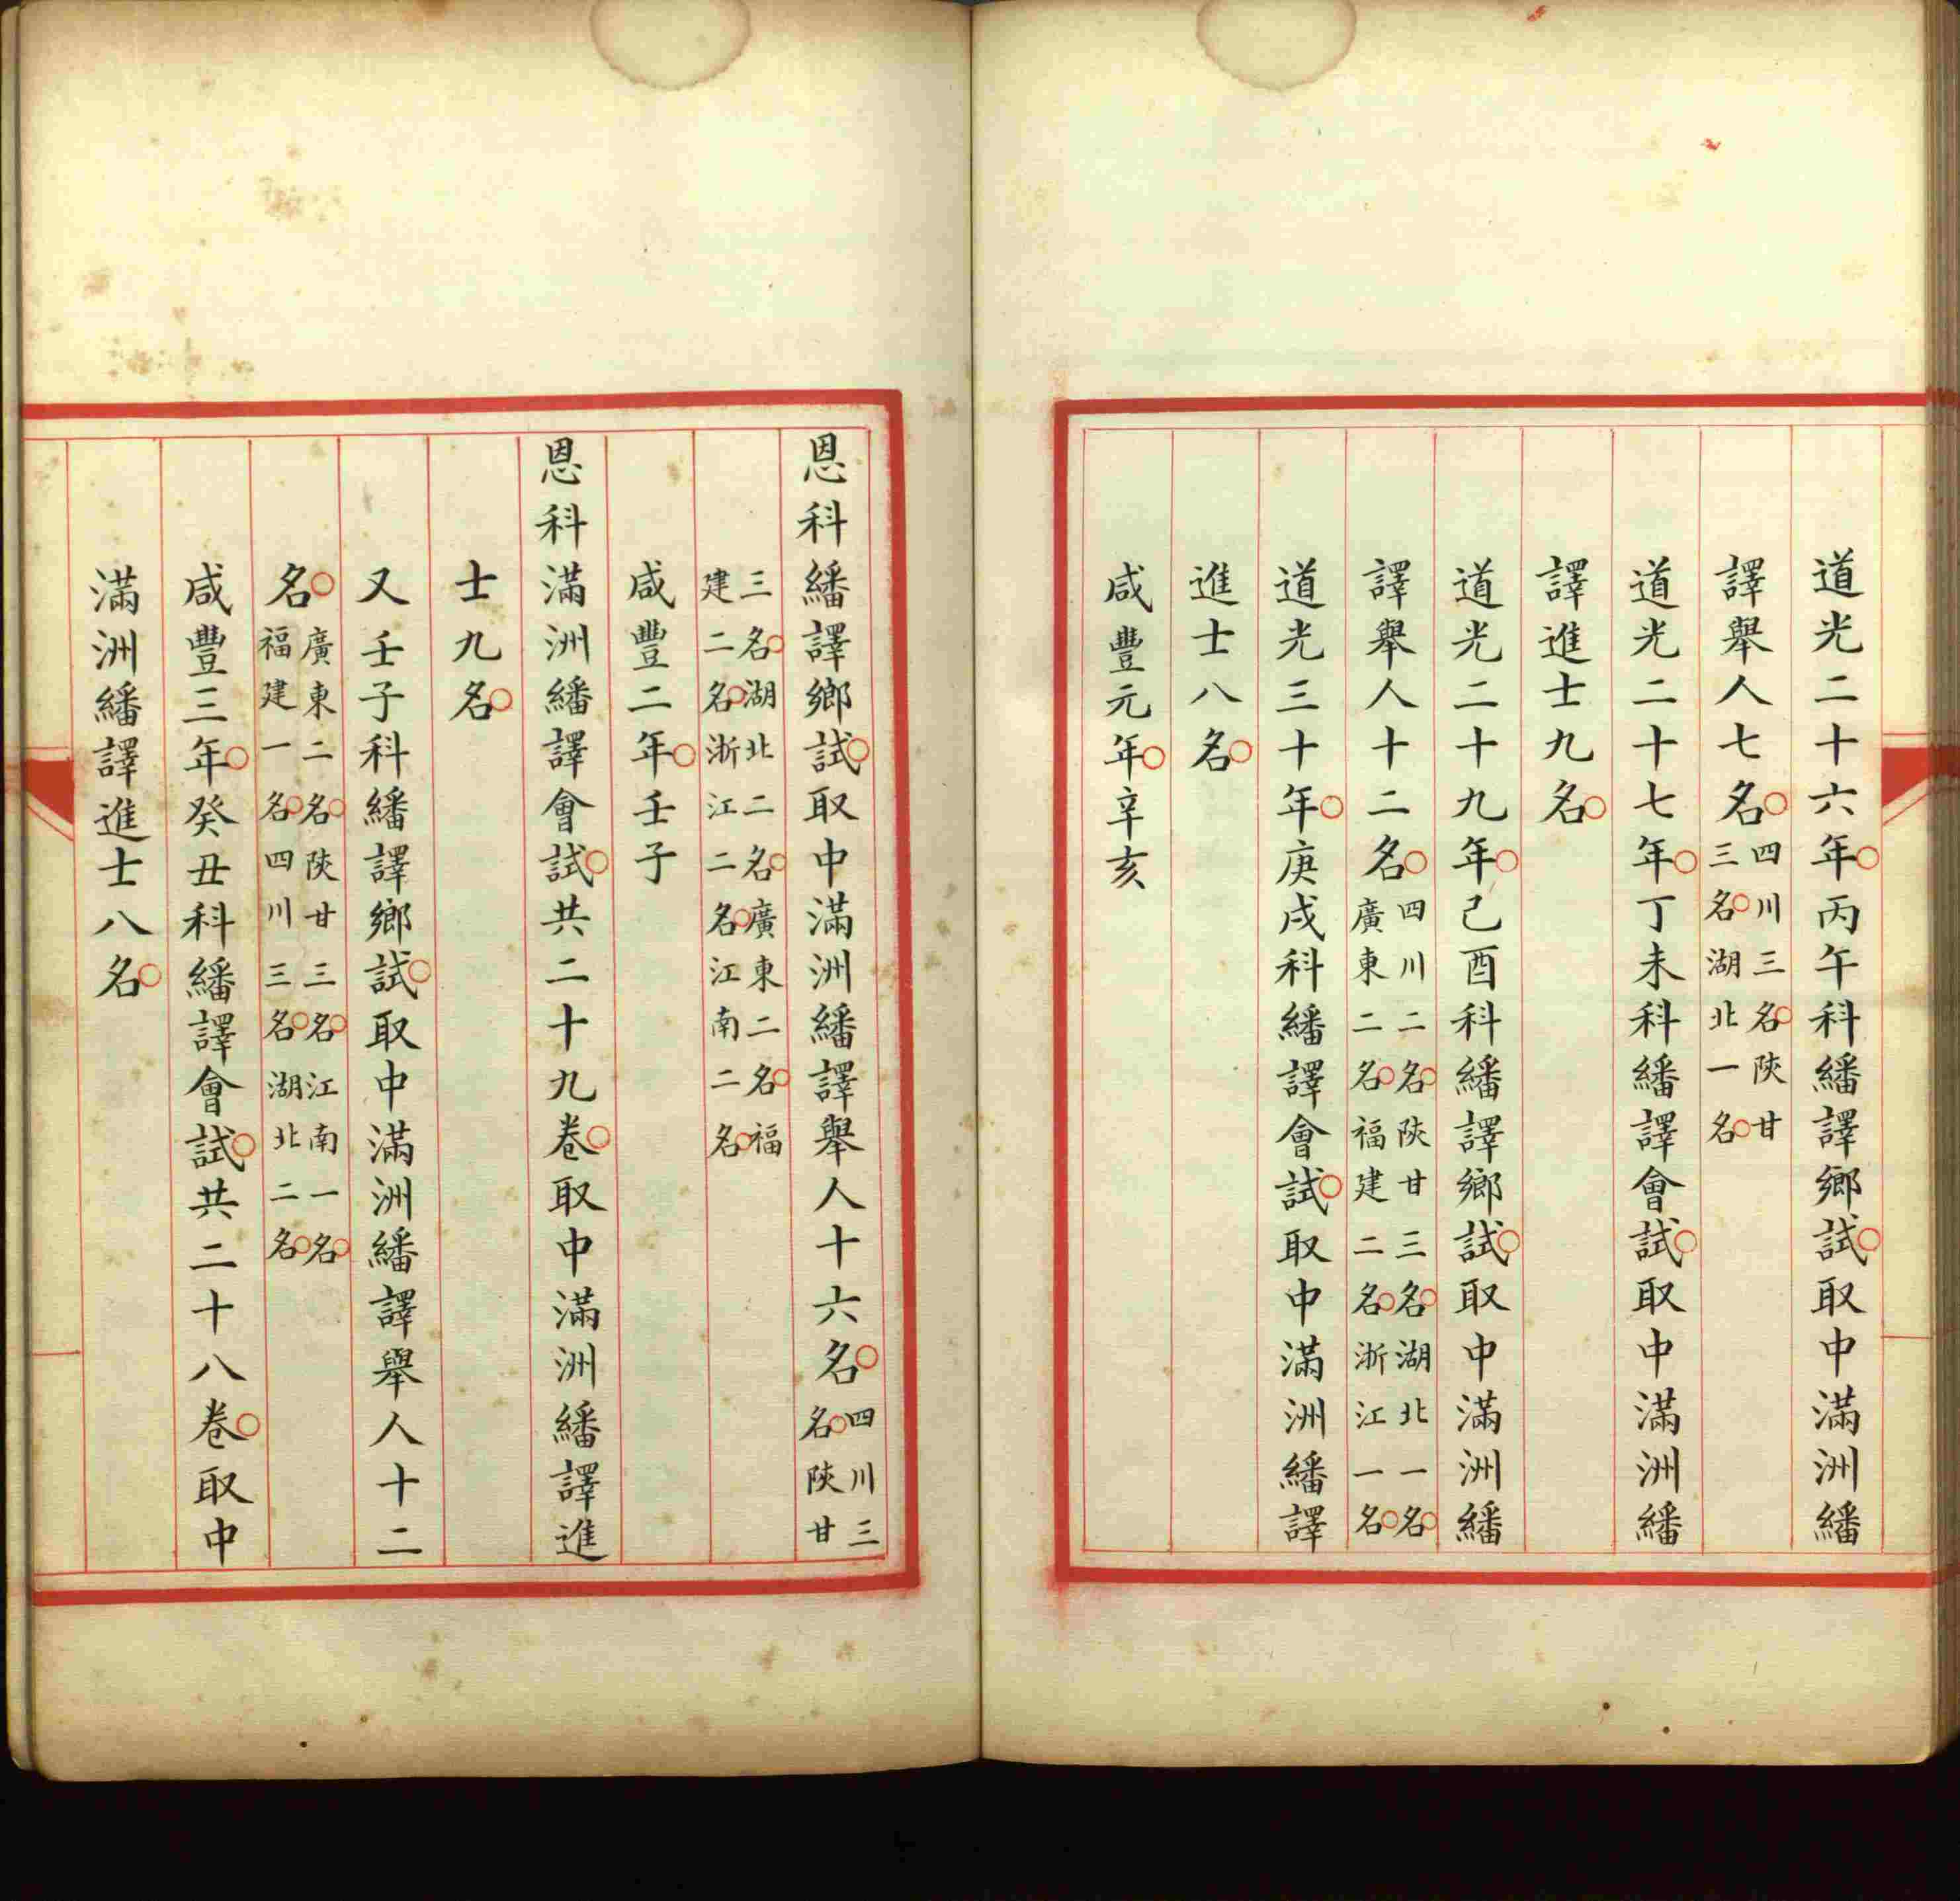 道光二十六年丙午科繙譯鄉試取中滿洲繙
譯舉人七名四川三名陝甘
三名湖北一名
道光二十七年丁未科繙譯會試取中滿洲繙
譯進士九名
道光二十九年己酉科繙譯鄉試取中滿洲繙
譯舉人十二名四川二名陝甘三名湖北一名
廣東二名福建二名浙江一名
道光三十年庚戌科繙譯會試取中滿洲繙譯
進士八名
咸豐元年辛亥
恩科繙譯鄉試取中滿洲繙譯舉人十六名四川三
名陝甘
三名湖北二名廣東二名福
建二名浙江二名江南二名
咸豐二年壬子
恩科滿洲繙譯會試共二十九卷取中滿洲繙譯進
士九名
又壬子科繙譯鄉試取中滿洲繙譯舉人十二
名廣東二名陝甘三名江南一名
福建一名四川三名湖北二名
咸豐三年癸丑科繙譯會試共二十八卷取中
滿洲繙譯進士八名